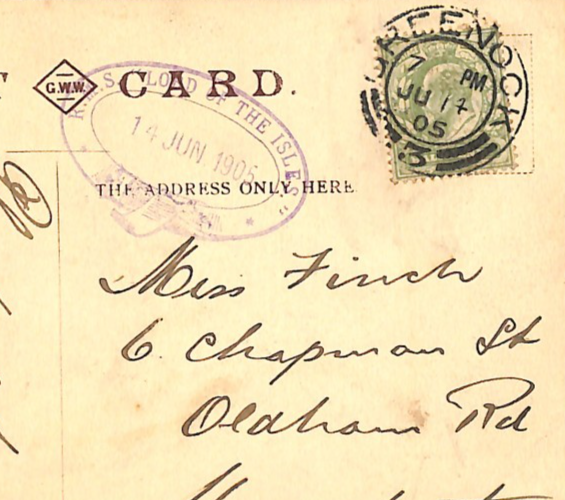 G.W.W. CARD.
R.M.S. "LORD OF THE ISLES"
14 JUN 1905
GREENOCK
7 PM
JU 14
05
3
THE ADDRESS ONLY HERE
Miss Finch
6. Chapman St
Oldham Rd